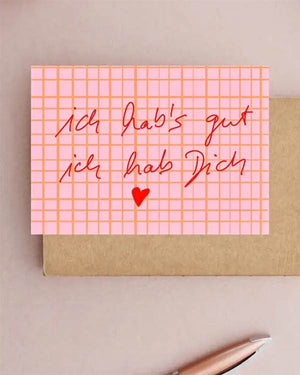 ich hab's gut
ich hab Dich